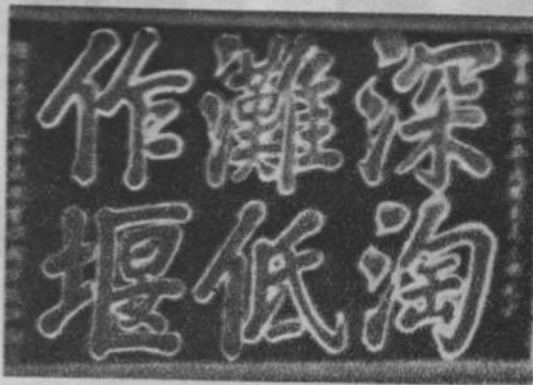 深淘
灘低
作堰